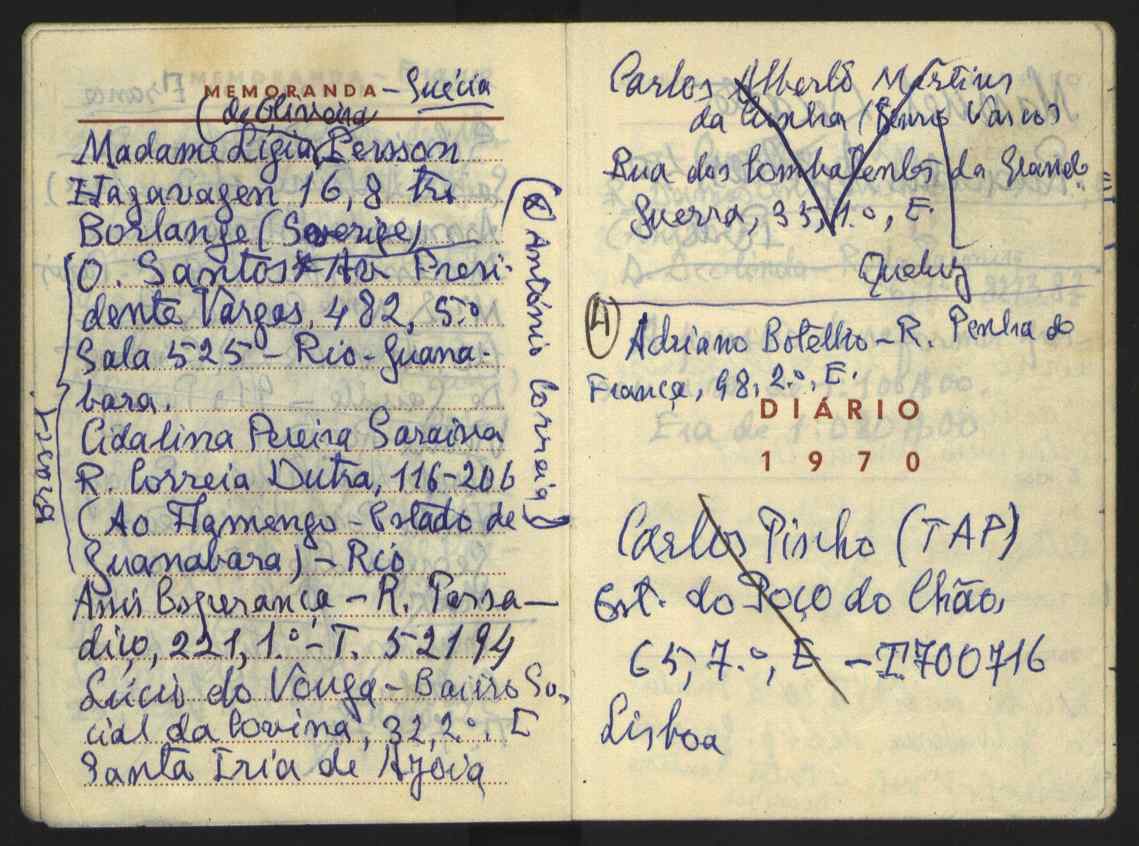 MEMORANDA - Suécia
(de Oliveira)
Madame Ligia Persson
Hagavagen 16, 8 tri
Borlange (Sverige)
O. Santos* Av. Presi-
dente Vargas, 482, 5.º
Sala 525 - Rio - Guana-
bara.
Cidalina Pereira Saraiva
R. Correia Dutra, 116-206
(Ao Flamengo - Estado de
Guanabara) - Rio
Brasil
(* António Correia)
Assis Esperança - R. Passa-
diço, 221, 1.º - T. 52194
Lúcio do Vouga - Bairro So-
cial da Covina, 32, 2.º, E
Santa Iria de Azoia
Carlos Alberto Martins
da Cunha (Vasco)
Rua dos Combatentes da Grande
Guerra, 35, 1.º, E.
Queluz
4 Adriano Botelho - R. Penha de
França, 98, 2.º, E.
DIÁRIO
1970
Carlos Pinho (TAP)
Est. do Poço do Chão,
65, 7.º, E - T. 700716
Lisboa